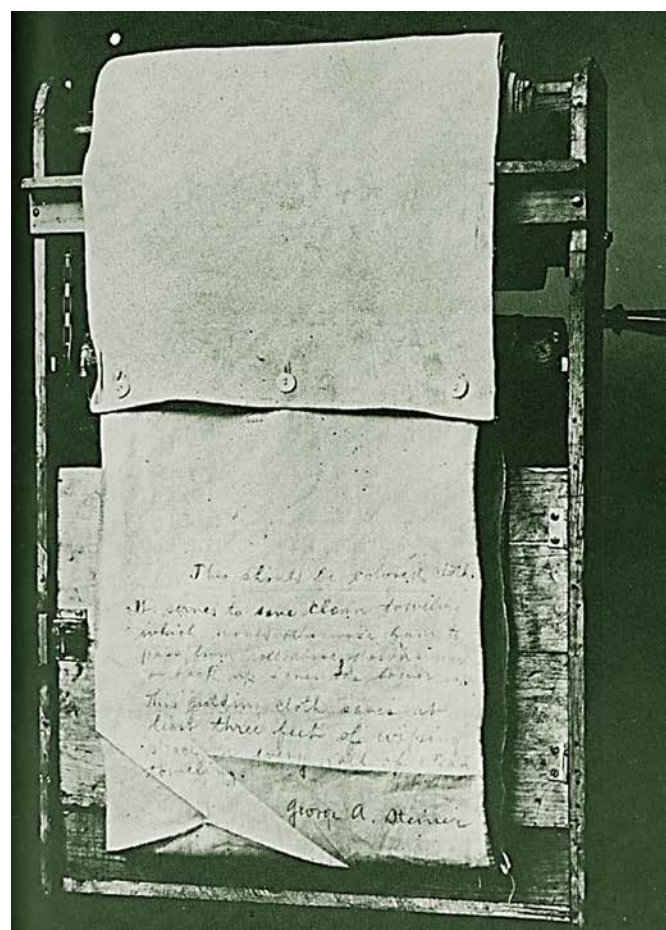 This should be colored cloth.
It serves to save clean toweling
which would otherwise have to
pass from
or back
This guiding cloth saves at
least three feet of wiping
space on every roll of clean
toweling.
George A. Steiner